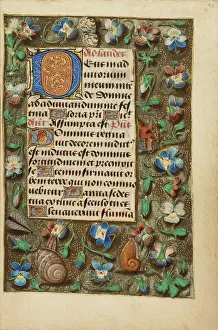 Ad laudes
Deus in ad
iutorium
meum inte
de Domine
ad adiuuandum me festi
na Gloria p̄ri
Assumpta est Ps
Dominus regna
uit decorem indut
est indutus est dominus
fortitudinem et precinx
Etenim firmauit or
bem terre qui non commo
uebitur Parata sedes
tua ex tunc a seculo
Eleuauerunt flumi